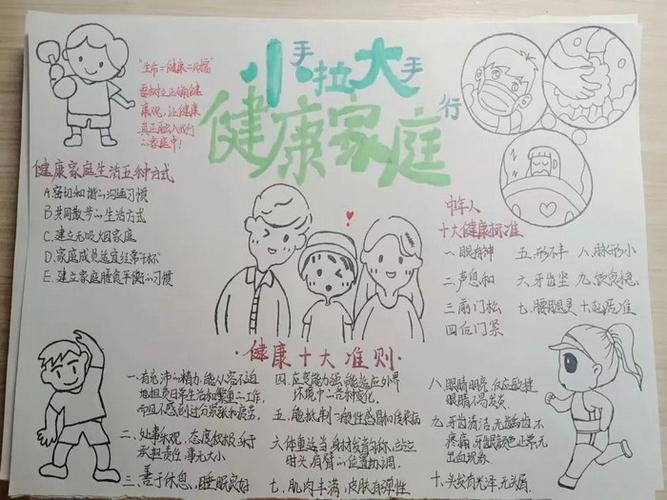 小手拉大手
健康家庭行
"生命=健康=幸福"
真正融入我们
的家庭中!
健康家庭生活五种方式
A.密切和谐的沟通习惯
B.共同散步的生活方式
C.建立无吸烟家庭
D.家庭成员适宜经常下标
E.建立家庭膳食平衡的习惯
中年人
十大健康标准
一.眼有神
二.声息和
三.前门松
四.后门紧
五.形不丰
六.牙齿坚
七.腰腿灵
八.脉形小
九.饮食稳
十.起居准
·健康十大准则·
一.有充沛的精力,能从容不迫
地担负日常生活和繁重的工作,
而且不感到过分紧张和疲劳。
二.处事乐观,态度积极,乐于
承担责任,事无大小
三.善于休息,睡眠良好
四.应变能力强,能适应外界
环境中的各种变化。
五.能抵制一般性感冒和传染病
六.体重适当,身材发育匀称,站立
时头,肩,臂的位置协调.
七.肌肉丰满,皮肤有弹性
八.眼睛明亮,反应敏捷
眼睛不易发炎。
九.牙齿清洁,无龋齿,不
疼痛,牙龈颜色正常,无
出血现象.
十.头发有光泽,无头屑.